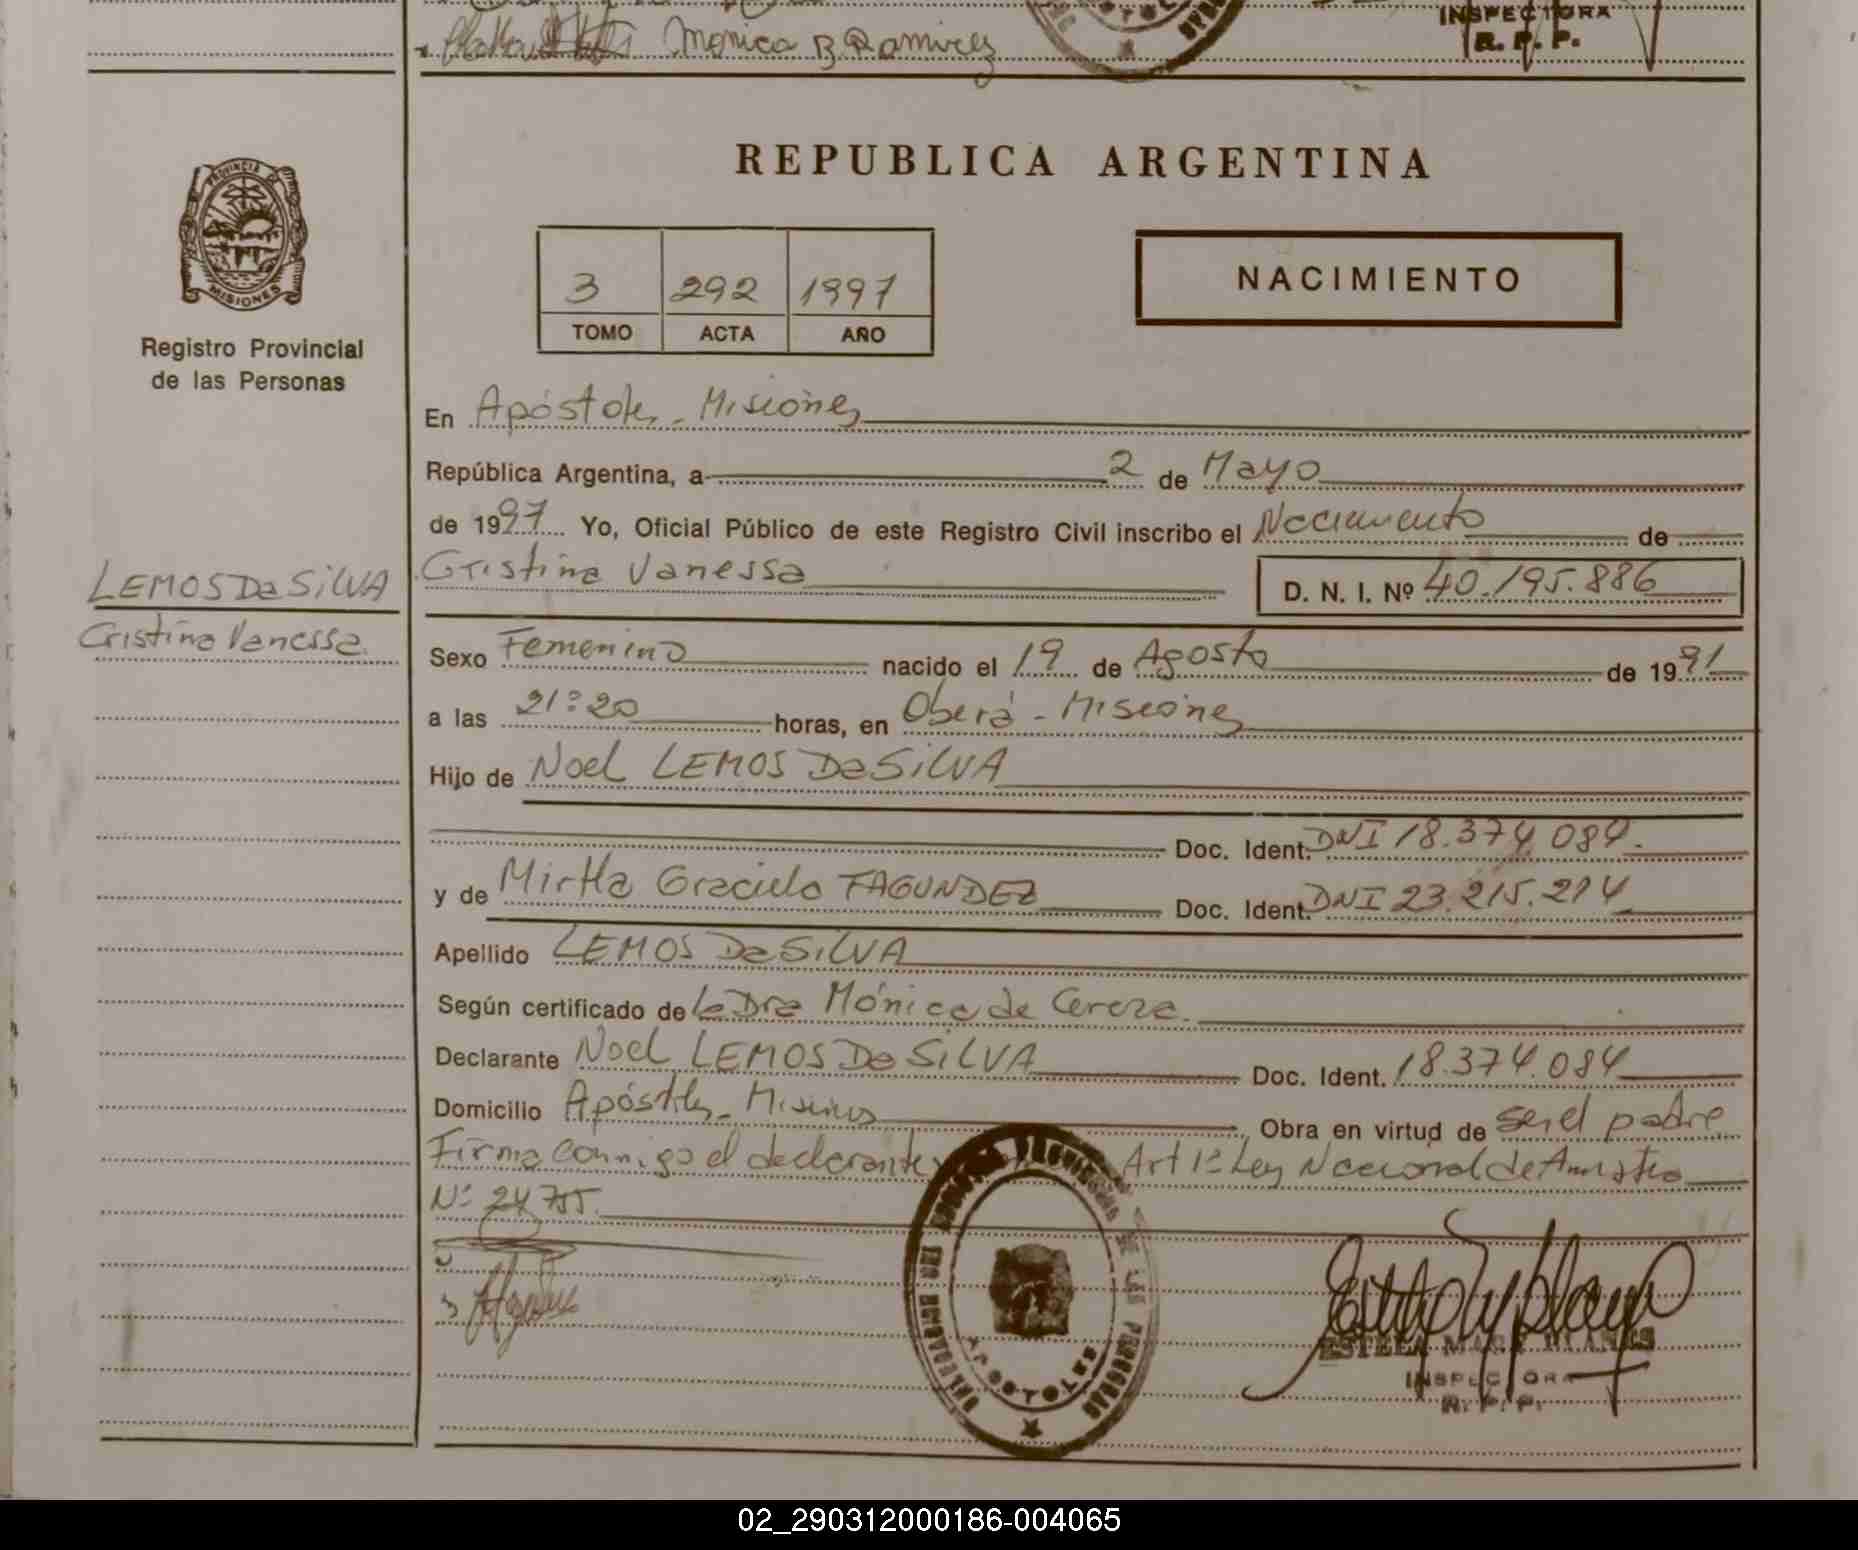 Monica B Ramirez
INSPECTORA
R. P. P.
REPUBLICA ARGENTINA
PROVINCIA DE
MISIONES
Registro Provincial
de las Personas
3 292 1997
TOMO ACTA AÑO
NACIMIENTO
En Apóstoles - Misiones
República Argentina, a 2 de Mayo
de 1997 Yo, Oficial Público de este Registro Civil inscribo el Nacimiento de
LEMOS Da SiLVA
Cristina Vanessa
Cristina Vanessa D. N. I. Nº 40.195.886
Sexo Femenino nacido el 19 de Agosto de 1991
a las 21:20 horas, en Oberá - Misiones
Hijo de Noel LEMOS Da SiLVA
Doc. Ident. DNI 18.374.084.
y de Mirtha Graciela FAGUNDEZ Doc. Ident. DNI 23.215.214
Apellido LEMOS Da SiLVA
Según certificado de la Dra Mónica de Cereza.
Declarante Noel LEMOS Da SiLVA Doc. Ident. 18.374.084
Domicilio Apóstoles - Misiones Obra en virtud de ser el padre
Firma conmigo el declarante Art 1º Ley Nacional de Amnistia
Nº 24755.
APOSTOLES
ESTELA
INSPECTORA
R. P. P.
02_290312000186-004065